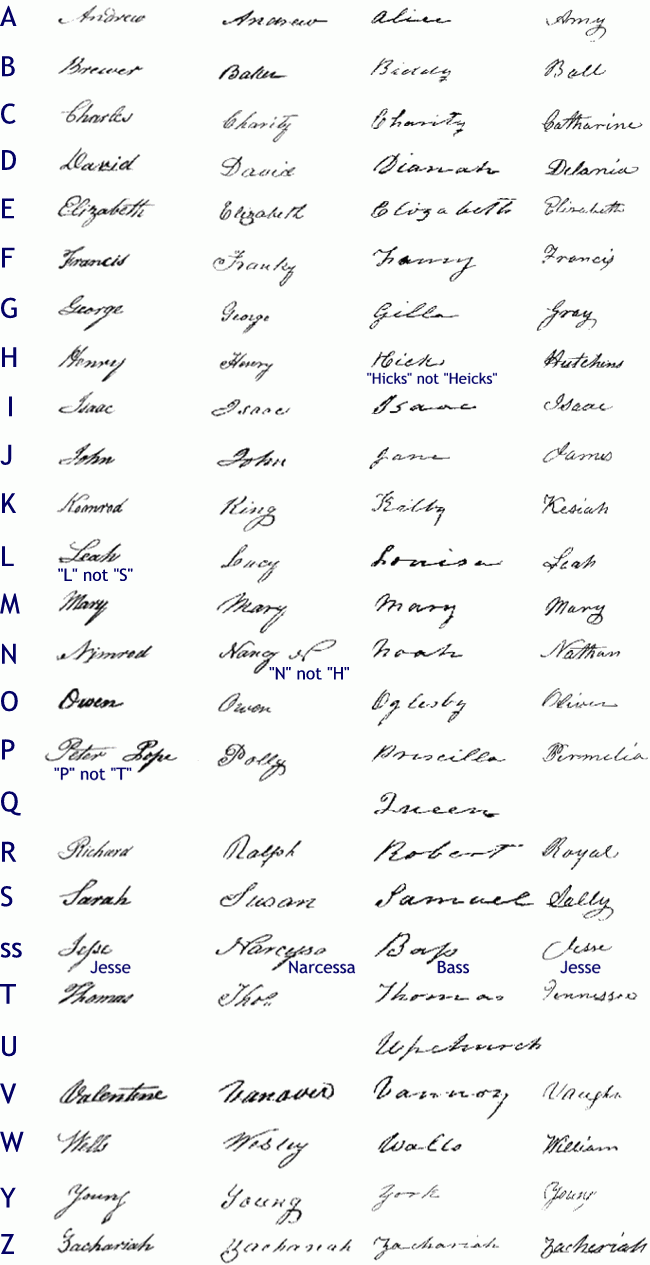 A Andrew Andrew Alice Amy
B Brewer Baker Biddy Ball
C Charles Charity Charity Catharine
D David David Dianah Delania
E Elizabeth Elizabeth Elizabeth Elizabeth
F Francis Franky Fanny Francis
G George George Gilla Gray
H Henry Henry Hicks Hutchins
"Hicks" not "Heicks"
I Isaac Isaac Isaac Isaac
J John John Jane James
K King Kilby Kesiah
L Leah Lucy Louisa Leah
"L" not "S"
M Mary Mary Mary Mary
N Nimrod Nancy N Noah Nathan
"N" not "H"
O Owen Owen Oglesby Oliver
P Peter Pope Polly Priscilla Permelia
"P" not "T"
Q Queen
R Richard Ralph Robert Royal
S Sarah Susan Samuel Sally
ss Jesse Narcyssa Bass Jesse
Jesse Narcessa Bass Jesse
T Thomas Thos Thomas Tennessee
U Upchurch
V Valentine Vanover Vannoy Vaughn
W Wells Wesley Walls William
Y Young Young York Young
Z Zachariah Zachariah Zachariah Zacheriah